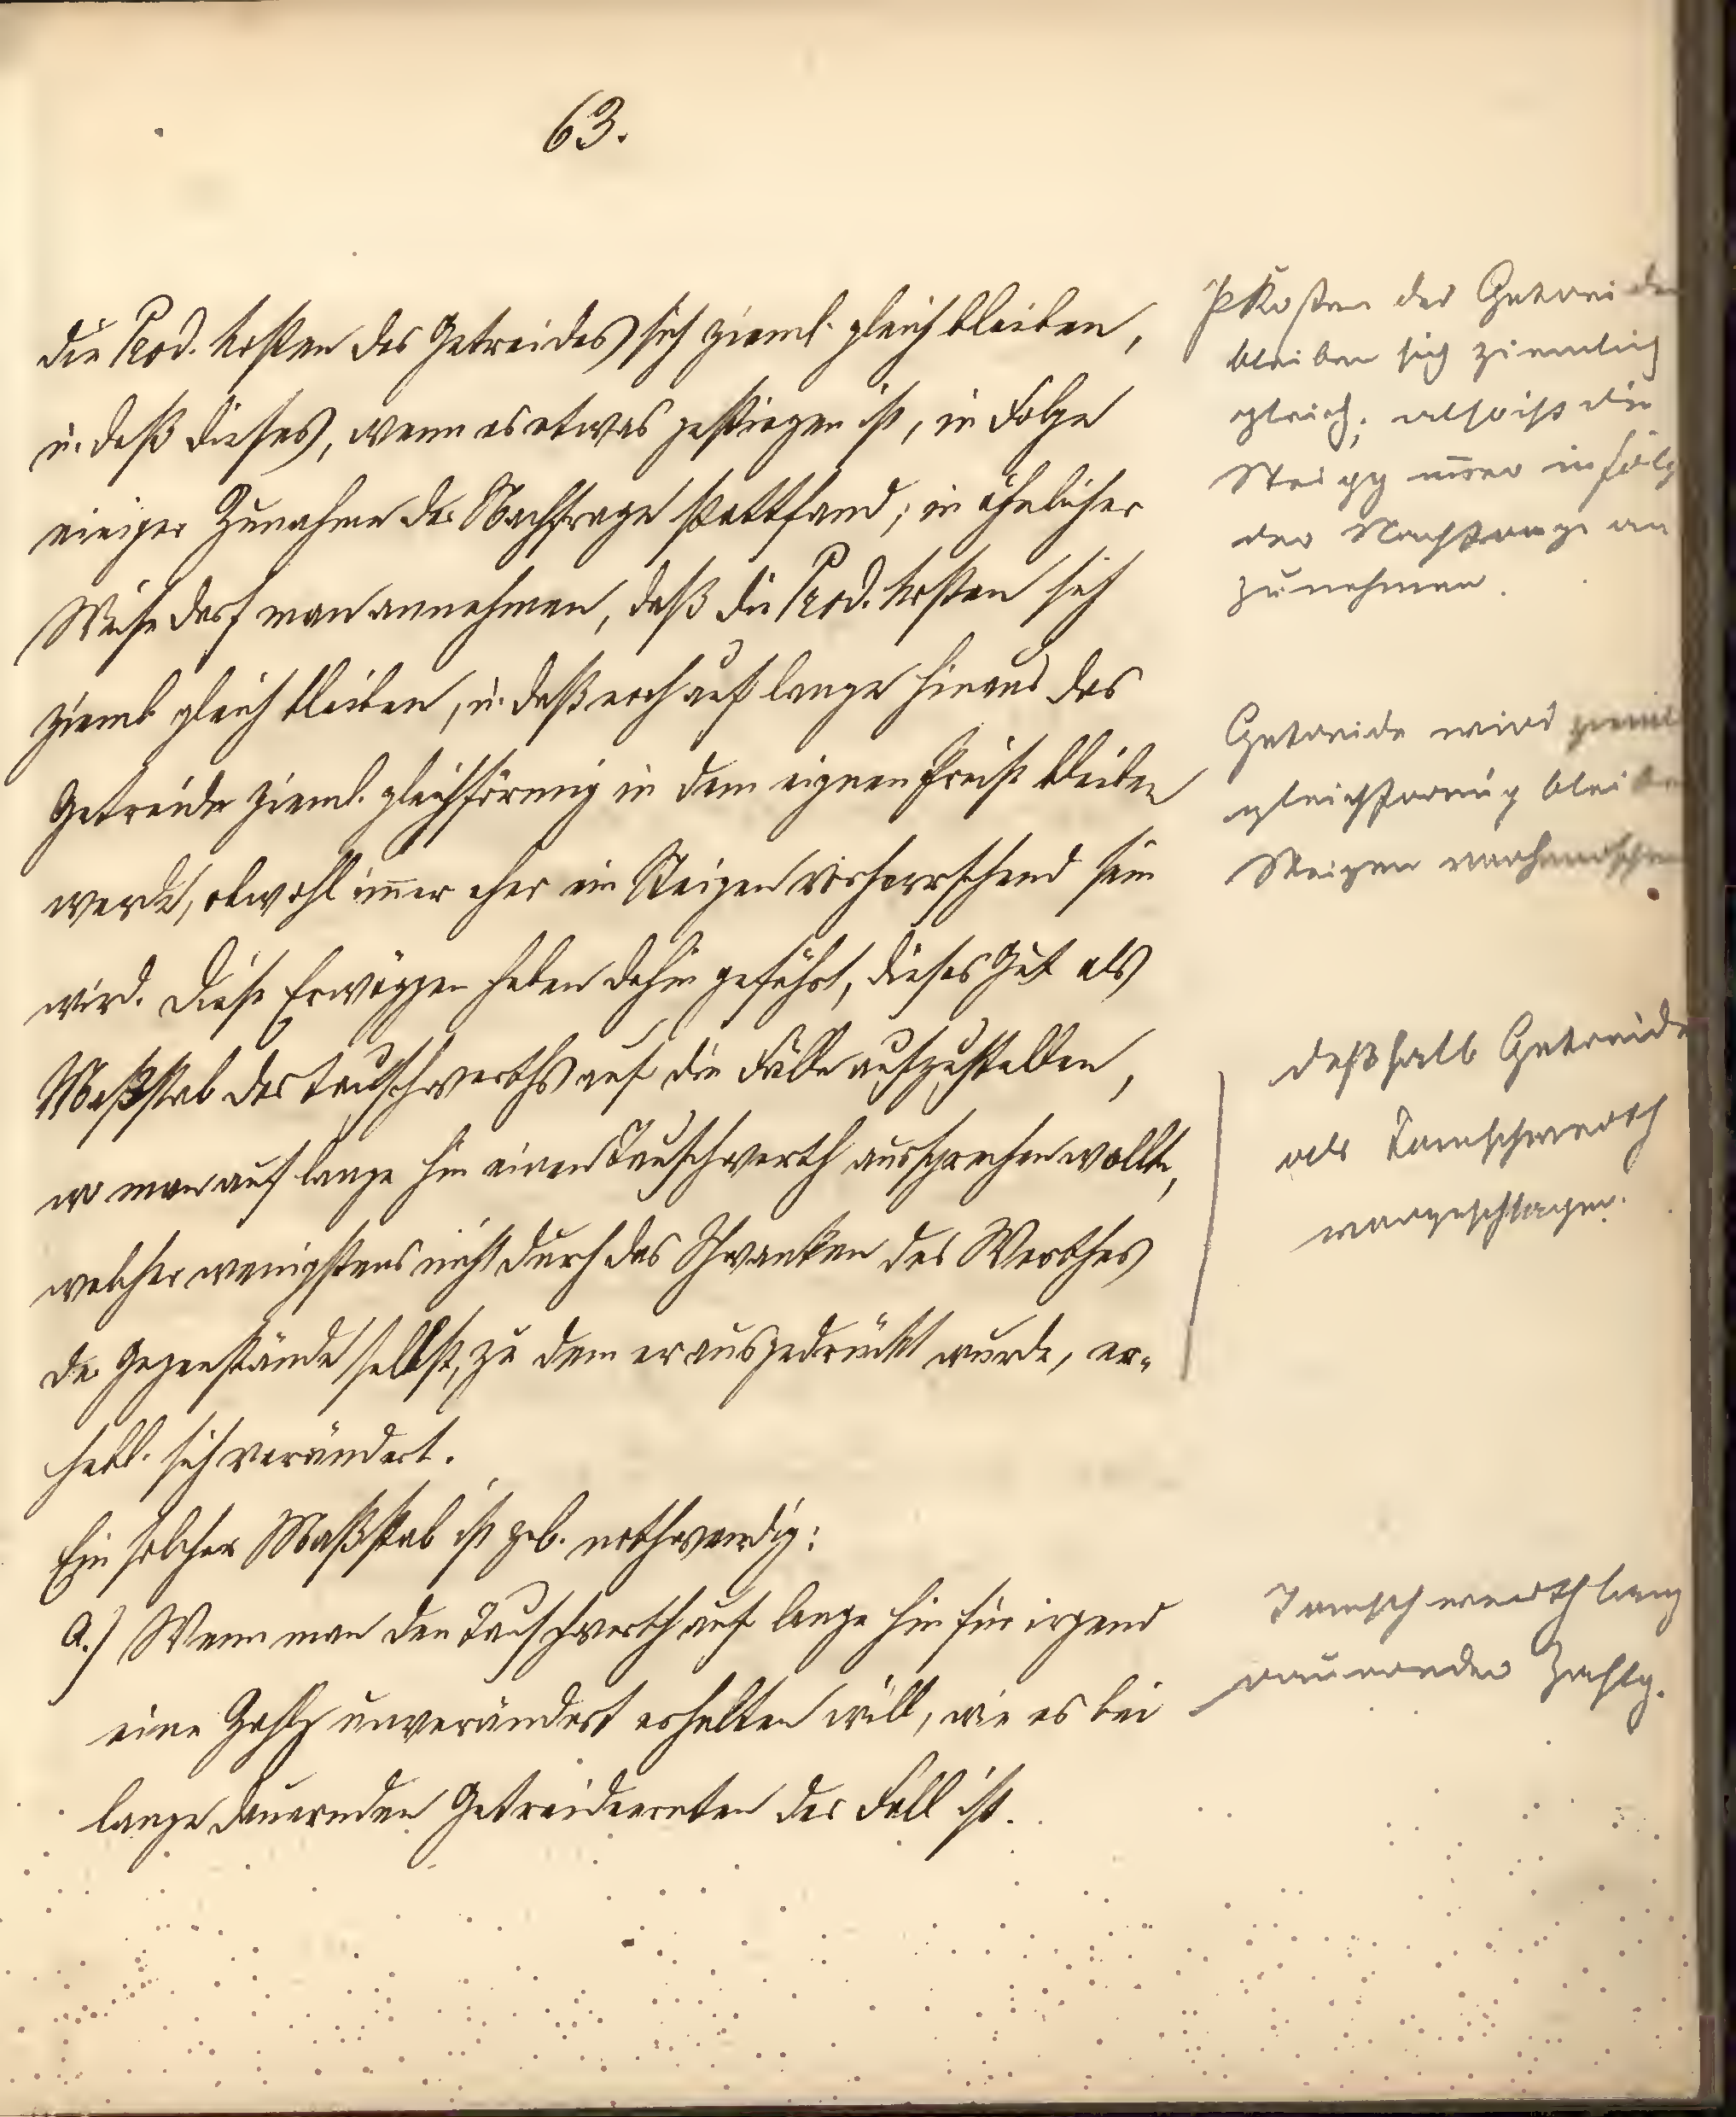 63.
die Prod. kosten des Getreides sich zieml. gleich bleiben,
u. daß dieses, wenn es etwas gestiegen ist, in Folge
einiger Zunahme der Nachfrage stattfand; in ähnlicher
Weise darf man annehmen, daß die Prod. kosten sich
ziemb gleich bleiben, u. daß noch auf lange hinaus das
Getreide zieml. gleichförmig in dem eignen Preise bleiben
werde, obwohl im̅er eher ein Steigen vorherrschend sein
wird. Diese Erwäggen haben dahin geführt, dieses Gut als
Maßstab des Tauschwerths auf die Fälle aufzustellen,
wo man auf lange hin einen Tauschwerth aussprechen wollte,
welcher wenigstens nicht durch das Schwanken des Werthes
der Gegenstände selbst, zu dem er ausgedrückt wurde, er-
hebl. sich verändert.
Ein solcher Maßstab ist geb. nothwendig:
a.) Wenn man den Tauschwerth auf lange hin für irgend
eine Zahlg unverändert erhalten will, wie es bei
lange dauernden Getreiderenten der Fall ist.
PKosten des Getreides
bleiben sich ziemlich
gleich; also ist die
Steigg im̅er in Folg
der Nachfrage an
zunehmen.
Getreide wird zieml
gleichförmig bleiben
Steigen vorherrschen
deßhalb Getreide
als Tauschwerth
vorgeschlagen.
Tauschwerth lang
dauernder Zahlg.